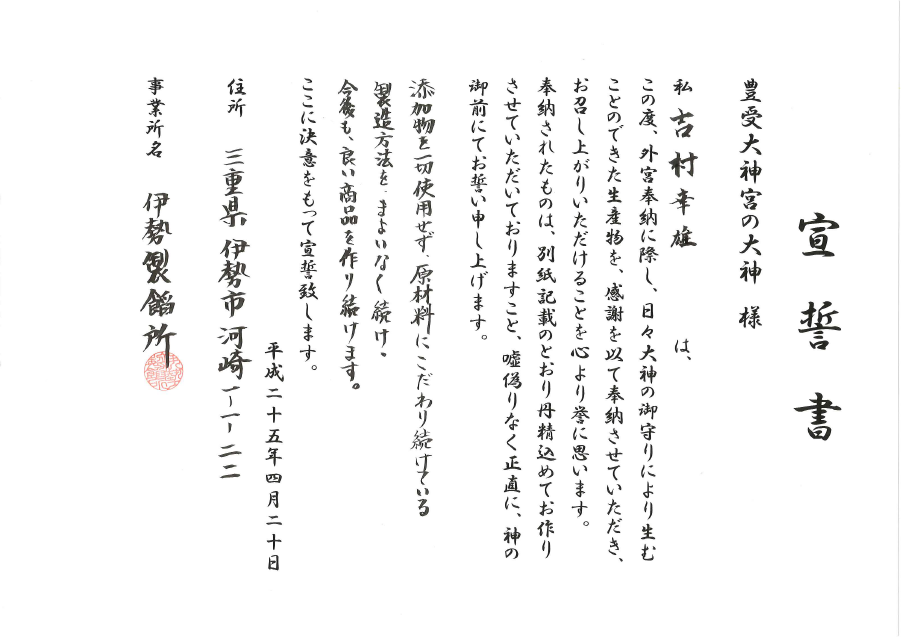 宣誓書
豊受大神宮の大神 様
私 吉村幸雄 は、
この度、外宮奉納に際し、日々大神の御守りにより生む
ことのできた生産物を、感謝を以て奉納させていただき、
お召し上がりいただけることを心より誉に思います。
奉納されたものは、別紙記載のとおり丹精込めてお作り
させていただいておりますこと、嘘偽りなく正直に、神の
御前にてお誓い申し上げます。
添加物を一切使用せず、原材料にこだわり続けている
製造方法を、まよいなく続け、
今後も、良い商品を作り続けます。
ここに決意をもって宣誓致します。
平成二十五年四月二十日
住所 三重県伊勢市河崎一ー一ー二二
事業所名 伊勢製餡所